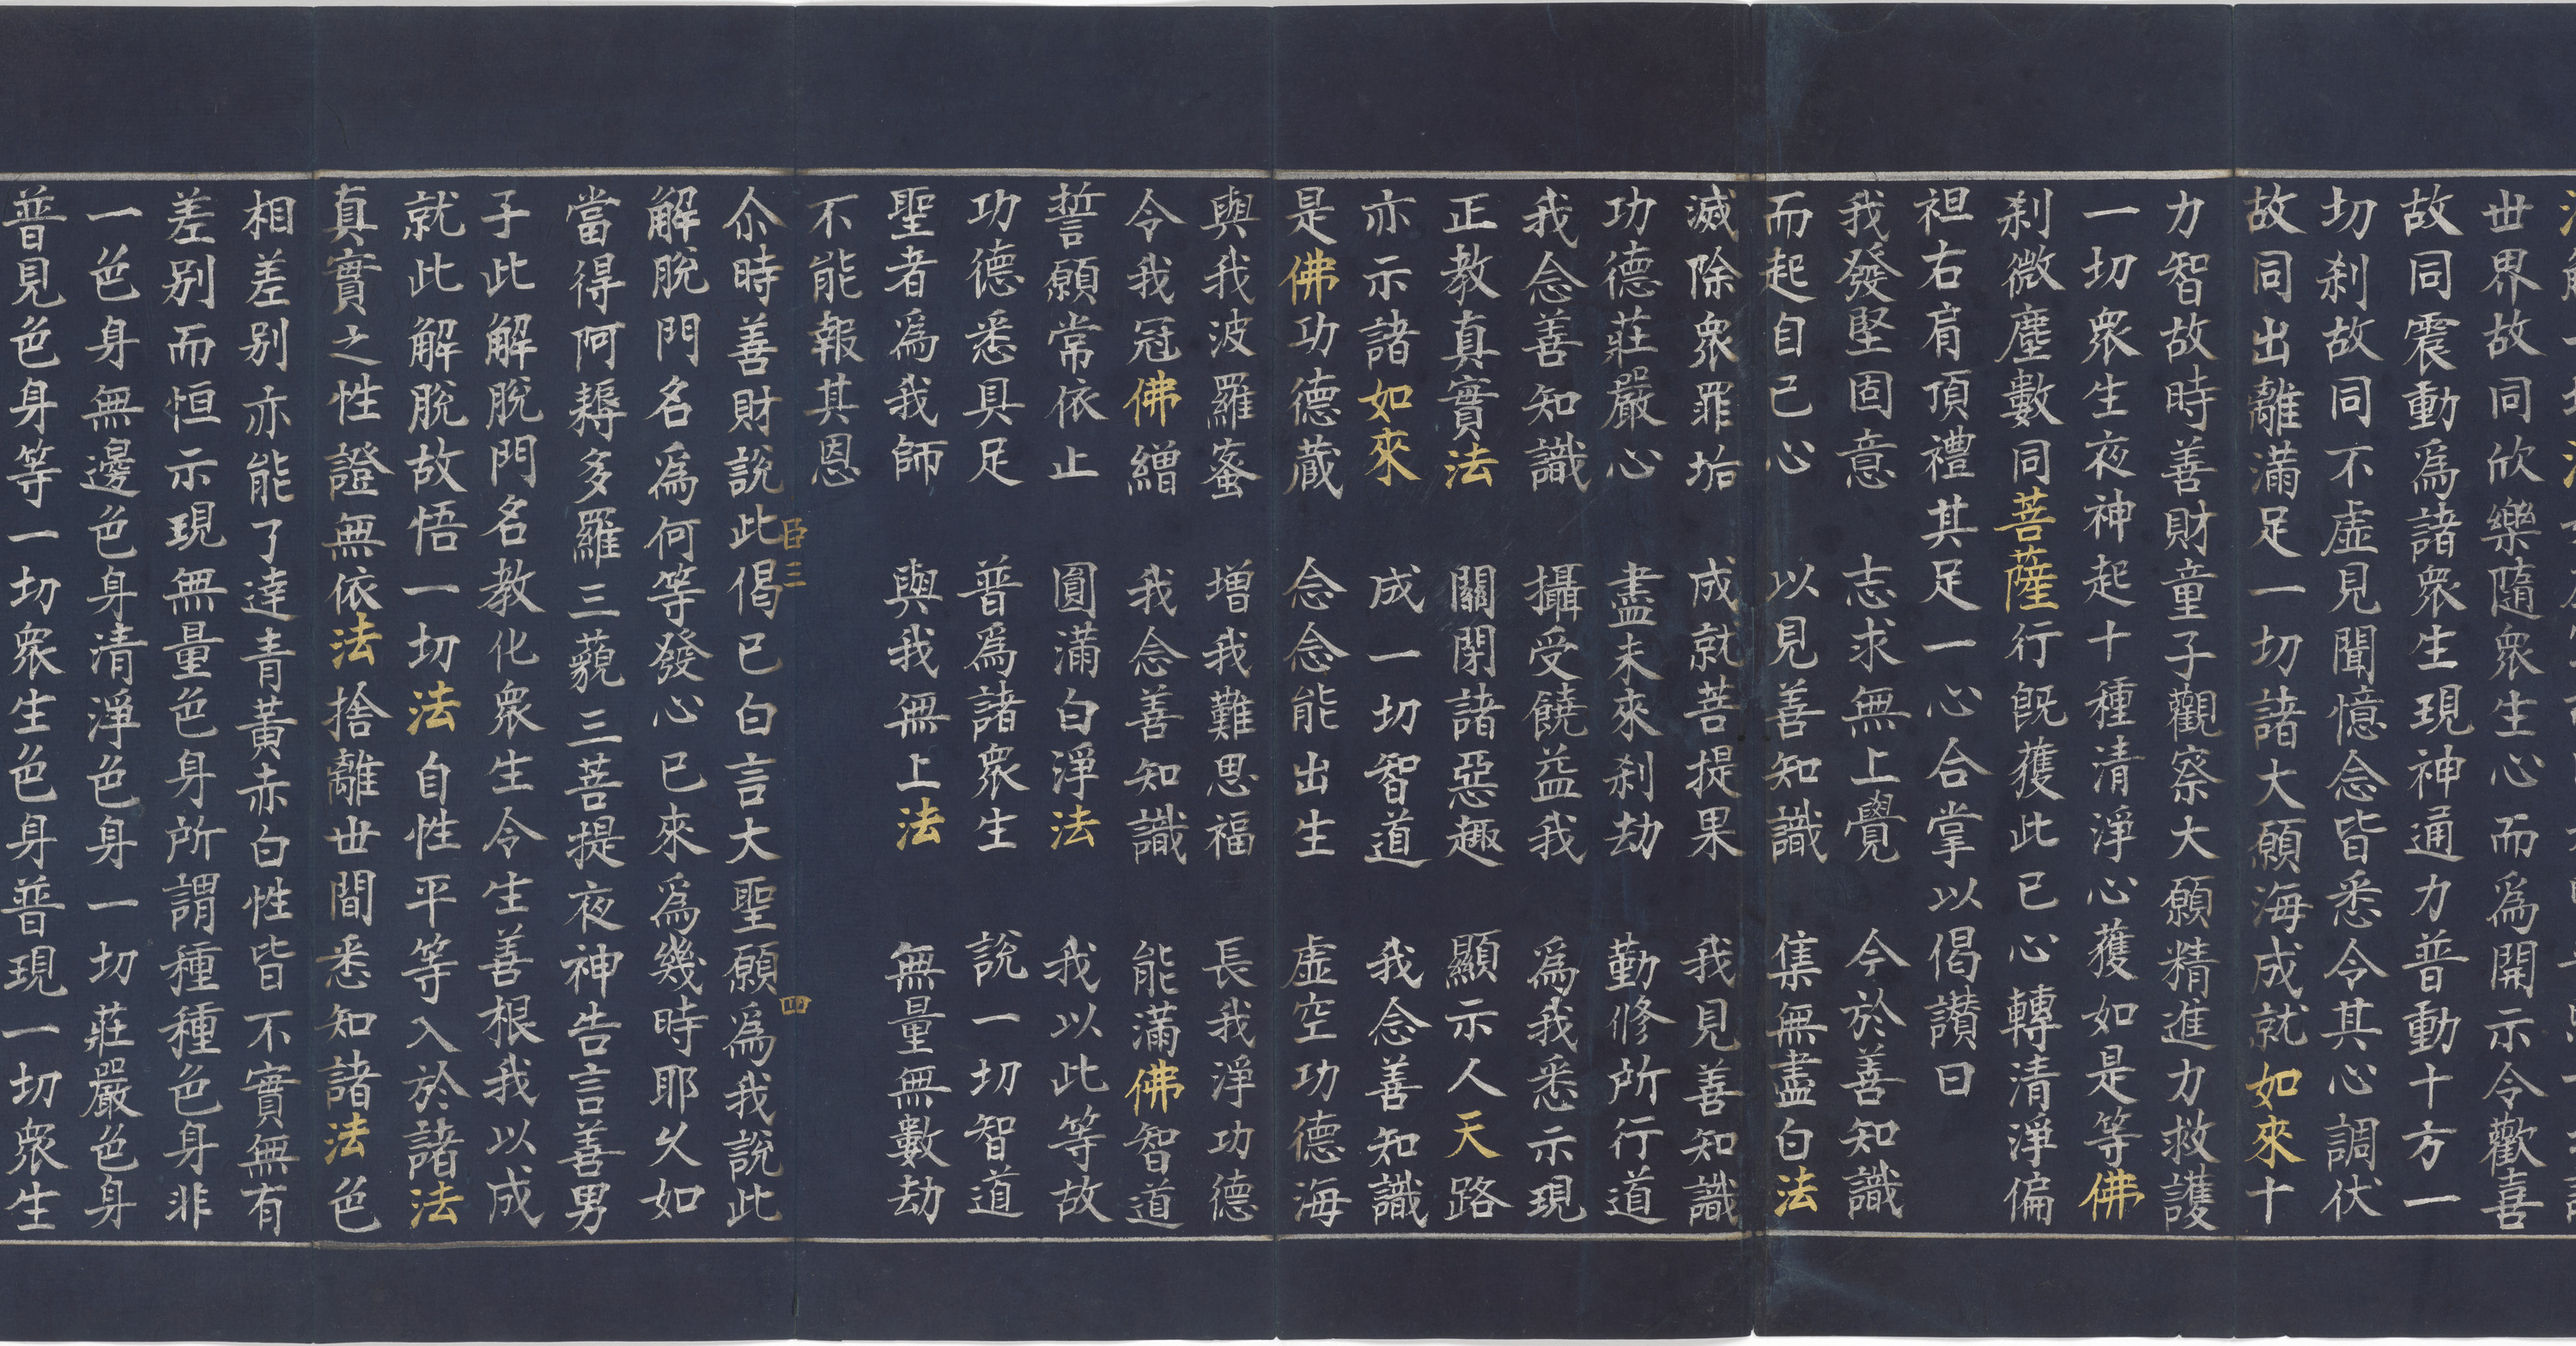 世界故同欣樂隨衆生心而為開示令歡喜
故同震動為諸衆生現神通力普動十方一
切刹故同不虛見聞憶念皆悉令其心調伏
故同出離滿足一切諸大願海成就如來十
力智故時善財童子觀察大願精進力救護
一切衆生夜神起十種清淨心獲如是等佛
刹微塵數同菩薩行旣獲此已心轉清淨偏
袒右肩頂禮其足一心合掌以偈讃曰
我發堅固意 志求無上覺 今於善知識
而起自己心 以見善知識 集無盡白法
滅除衆罪垢 成就菩提果 我見善知識
功德莊嚴心 盡未來刹劫 勤修所行道
我念善知識 攝受饒益我 為我悉示現
正教真實法 關閉諸惡趣 顯示人天路
亦示諸如來 成一切智道 我念善知識
是佛功德藏 念念能出生 虛空功德海
與我波羅蜜 增我難思福 長我淨功德
令我冠佛繒 我念善知識 能滿佛智道
誓願常依止 圓滿白淨法 我以此等故
功德悉具足 普為諸衆生 說一切智道
聖者為我師 與我無上法 無量無數劫
不能報其恩
臣三 四
尒時善財說此偈已白言大聖願為我說此
解脫門名為何等發心已來為幾時耶乆如
當得阿耨多羅三藐三菩提夜神告言善男
子此解脫門名教化衆生令生善根我以成
就此解脫故悟一切法自性平等入於諸法
真實之性證無依法捨離世間悉知諸法色
相差别亦能了達青黃赤白性皆不實無有
差别而恒示現無量色身所謂種種色身非
一色身無邊色身清淨色身一切莊嚴色身
普見色身等一切衆生色身普現一切衆生